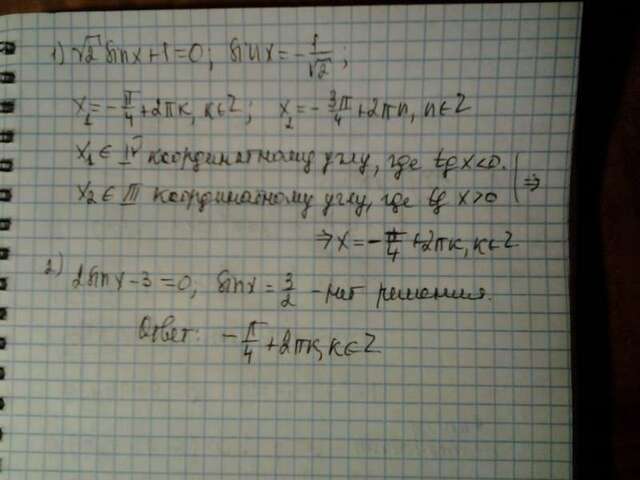 1) √2 sinx+1=0; sinx=-1/√2;
x₁=-π/4+2πk, k∈Z; x₂=-3π/4+2πn, n∈Z
x₁∈ IV координатному углу, где tgx<0.
x₂∈ III координатному углу, где tg x>0 ⇒
⇒ x=-π/4+2πk, k∈Z
2) 2sinx-3=0; sinx=3/2 - нет решения.
Ответ: -π/4+2πk, k∈Z